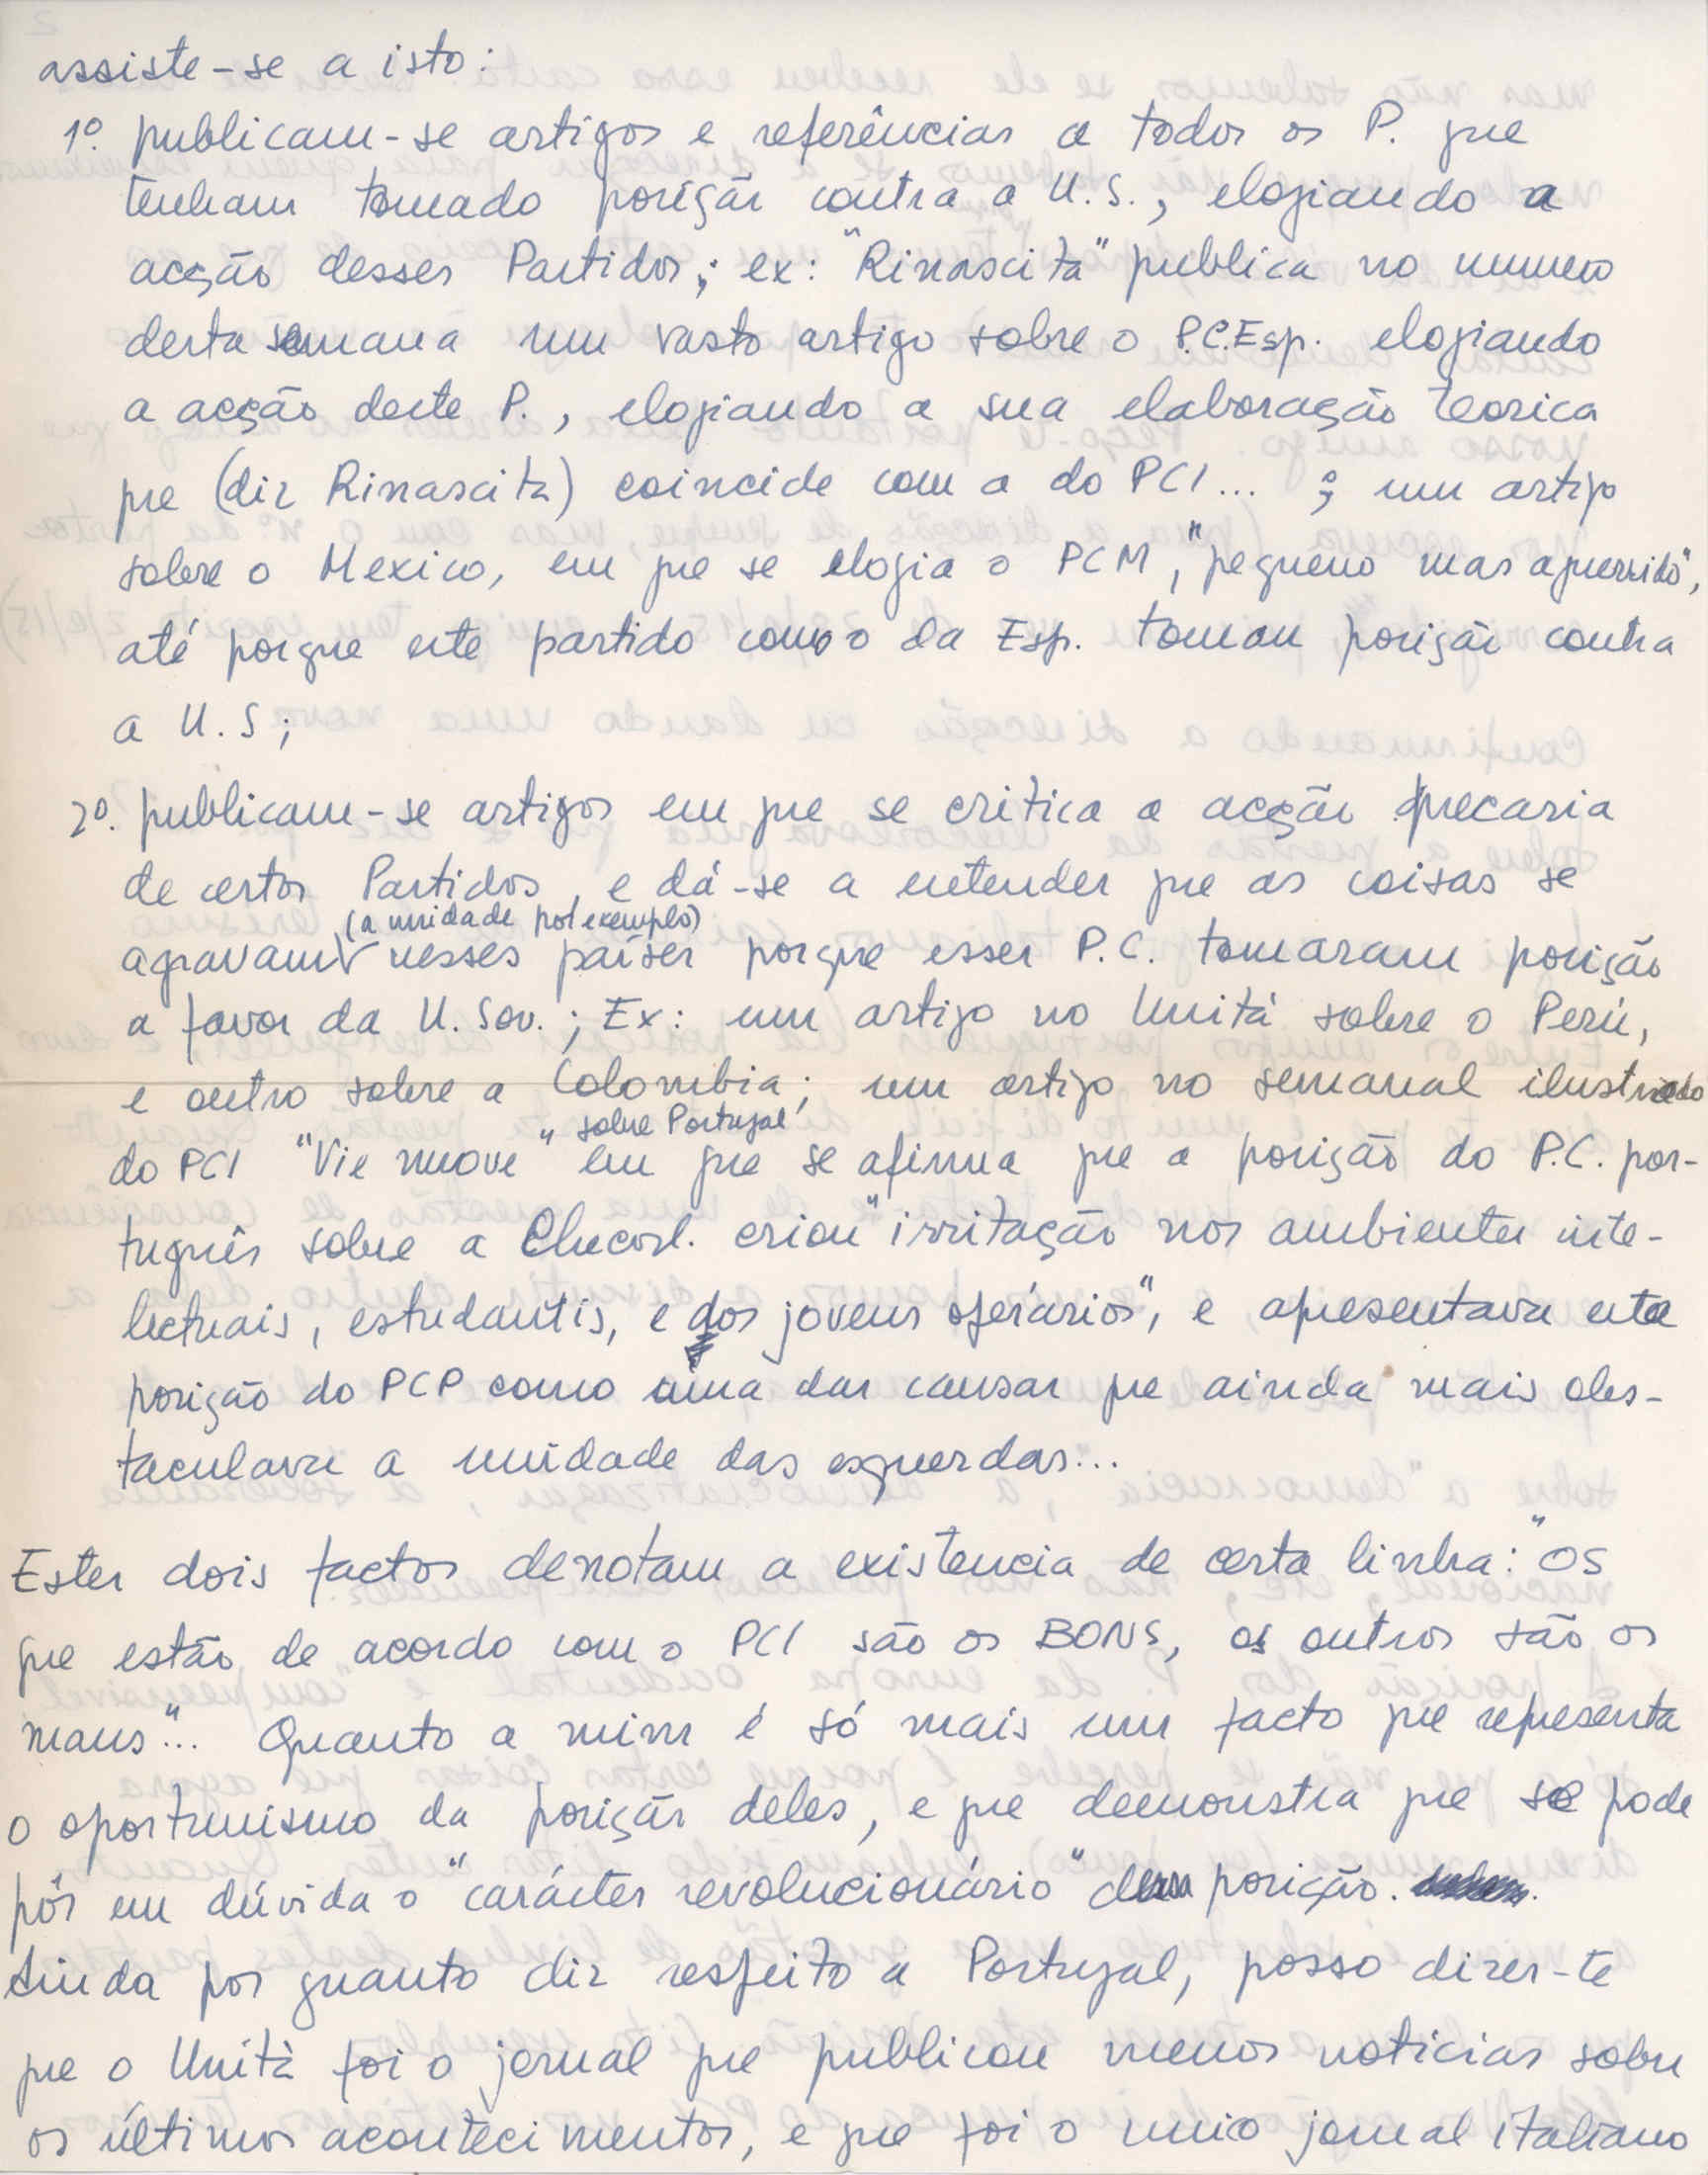 assiste-se a isto:
1º. publicam-se artigos e referências a todos os P. que
tenham tomado posição contra a U.S., elogiando a
acção desses Partidos; ex: "Rinascita" publica no numero
desta semana um vasto artigo sobre o P.C.Esp. elogiando
a acção deste P., elogiando a sua elaboração teorica
que (diz Rinascita) coincide com a do PCI... ; um artigo
sobre o Mexico, em que se elogia o PCM, "pequeno mas aguerrido",
até porque este partido como o da Esp. tomou posição contra
a U.S;
2º. publicam-se artigos em que se critica a acção precaria
de certos Partidos, e dá-se a entender que as coisas se
agravam (a unidade por exemplo) nesses países porque esses P.C. tomaram posição
a favor da U. Sov.; Ex: um artigo no Unitá sobre o Perú,
e outro sobre a Colombia; um artigo no semanal ilustrado
do PCI "Vie nuove" sobre Portugal, em que se afirma que a posição do P.C. por-
tuguês sobre a Checosl. criou "irritação nos ambientes inte-
lectuais, estudantis, e dos jovens operários", e apresentava esta
posição do PCP como uma das causas que ainda mais obs-
taculava a unidade das esquerdas...
Estes dois factos denotam a existencia de certa linha: "os
que estão de acordo com o PCI são os BONS, os outros são os
maus"... Quanto a mim é só mais um facto que representa
o oportunismo da posição deles, e que demonstra que se pode
pôr em dúvida o "carácter revolucionário" dessa posição.
Ainda por quanto diz respeito a Portugal, posso dizer-te
que o Unità foi o jornal que publicou menos noticias sobre
os últimos acontecimentos, e que foi o unico jornal italiano